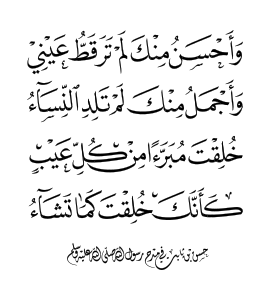 وَأَحْسَنُ مِنْكَ لَمْ تَرَ قَطُّ عَيْنِي
وَأَجْمَلُ مِنْكَ لَمْ تَلِدِ النِّسَاءُ
خُلِقْتَ مُبَرَّءًا مِنْ كُلِّ عَيْبٍ
كَأَنَّكَ خُلِقْتَ كَمَا تَشَاءُ
حسن بن ثابت في مدح رسول الله صلى الله عليه وسلم